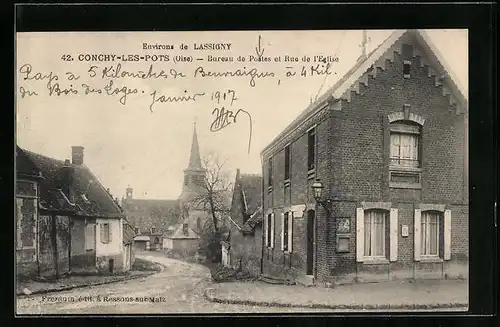 Environs de LASSIGNY
42. CONCHY-LES-POTS (Oise) — Bureau de Postes et Rue de l'Eglise
Pays à 5 Kilomètres du Beuvraignes, à 4 Kil
du Bois des Loges. Janvier 1917
Frezouin édit. à Ressons-sur-Matz